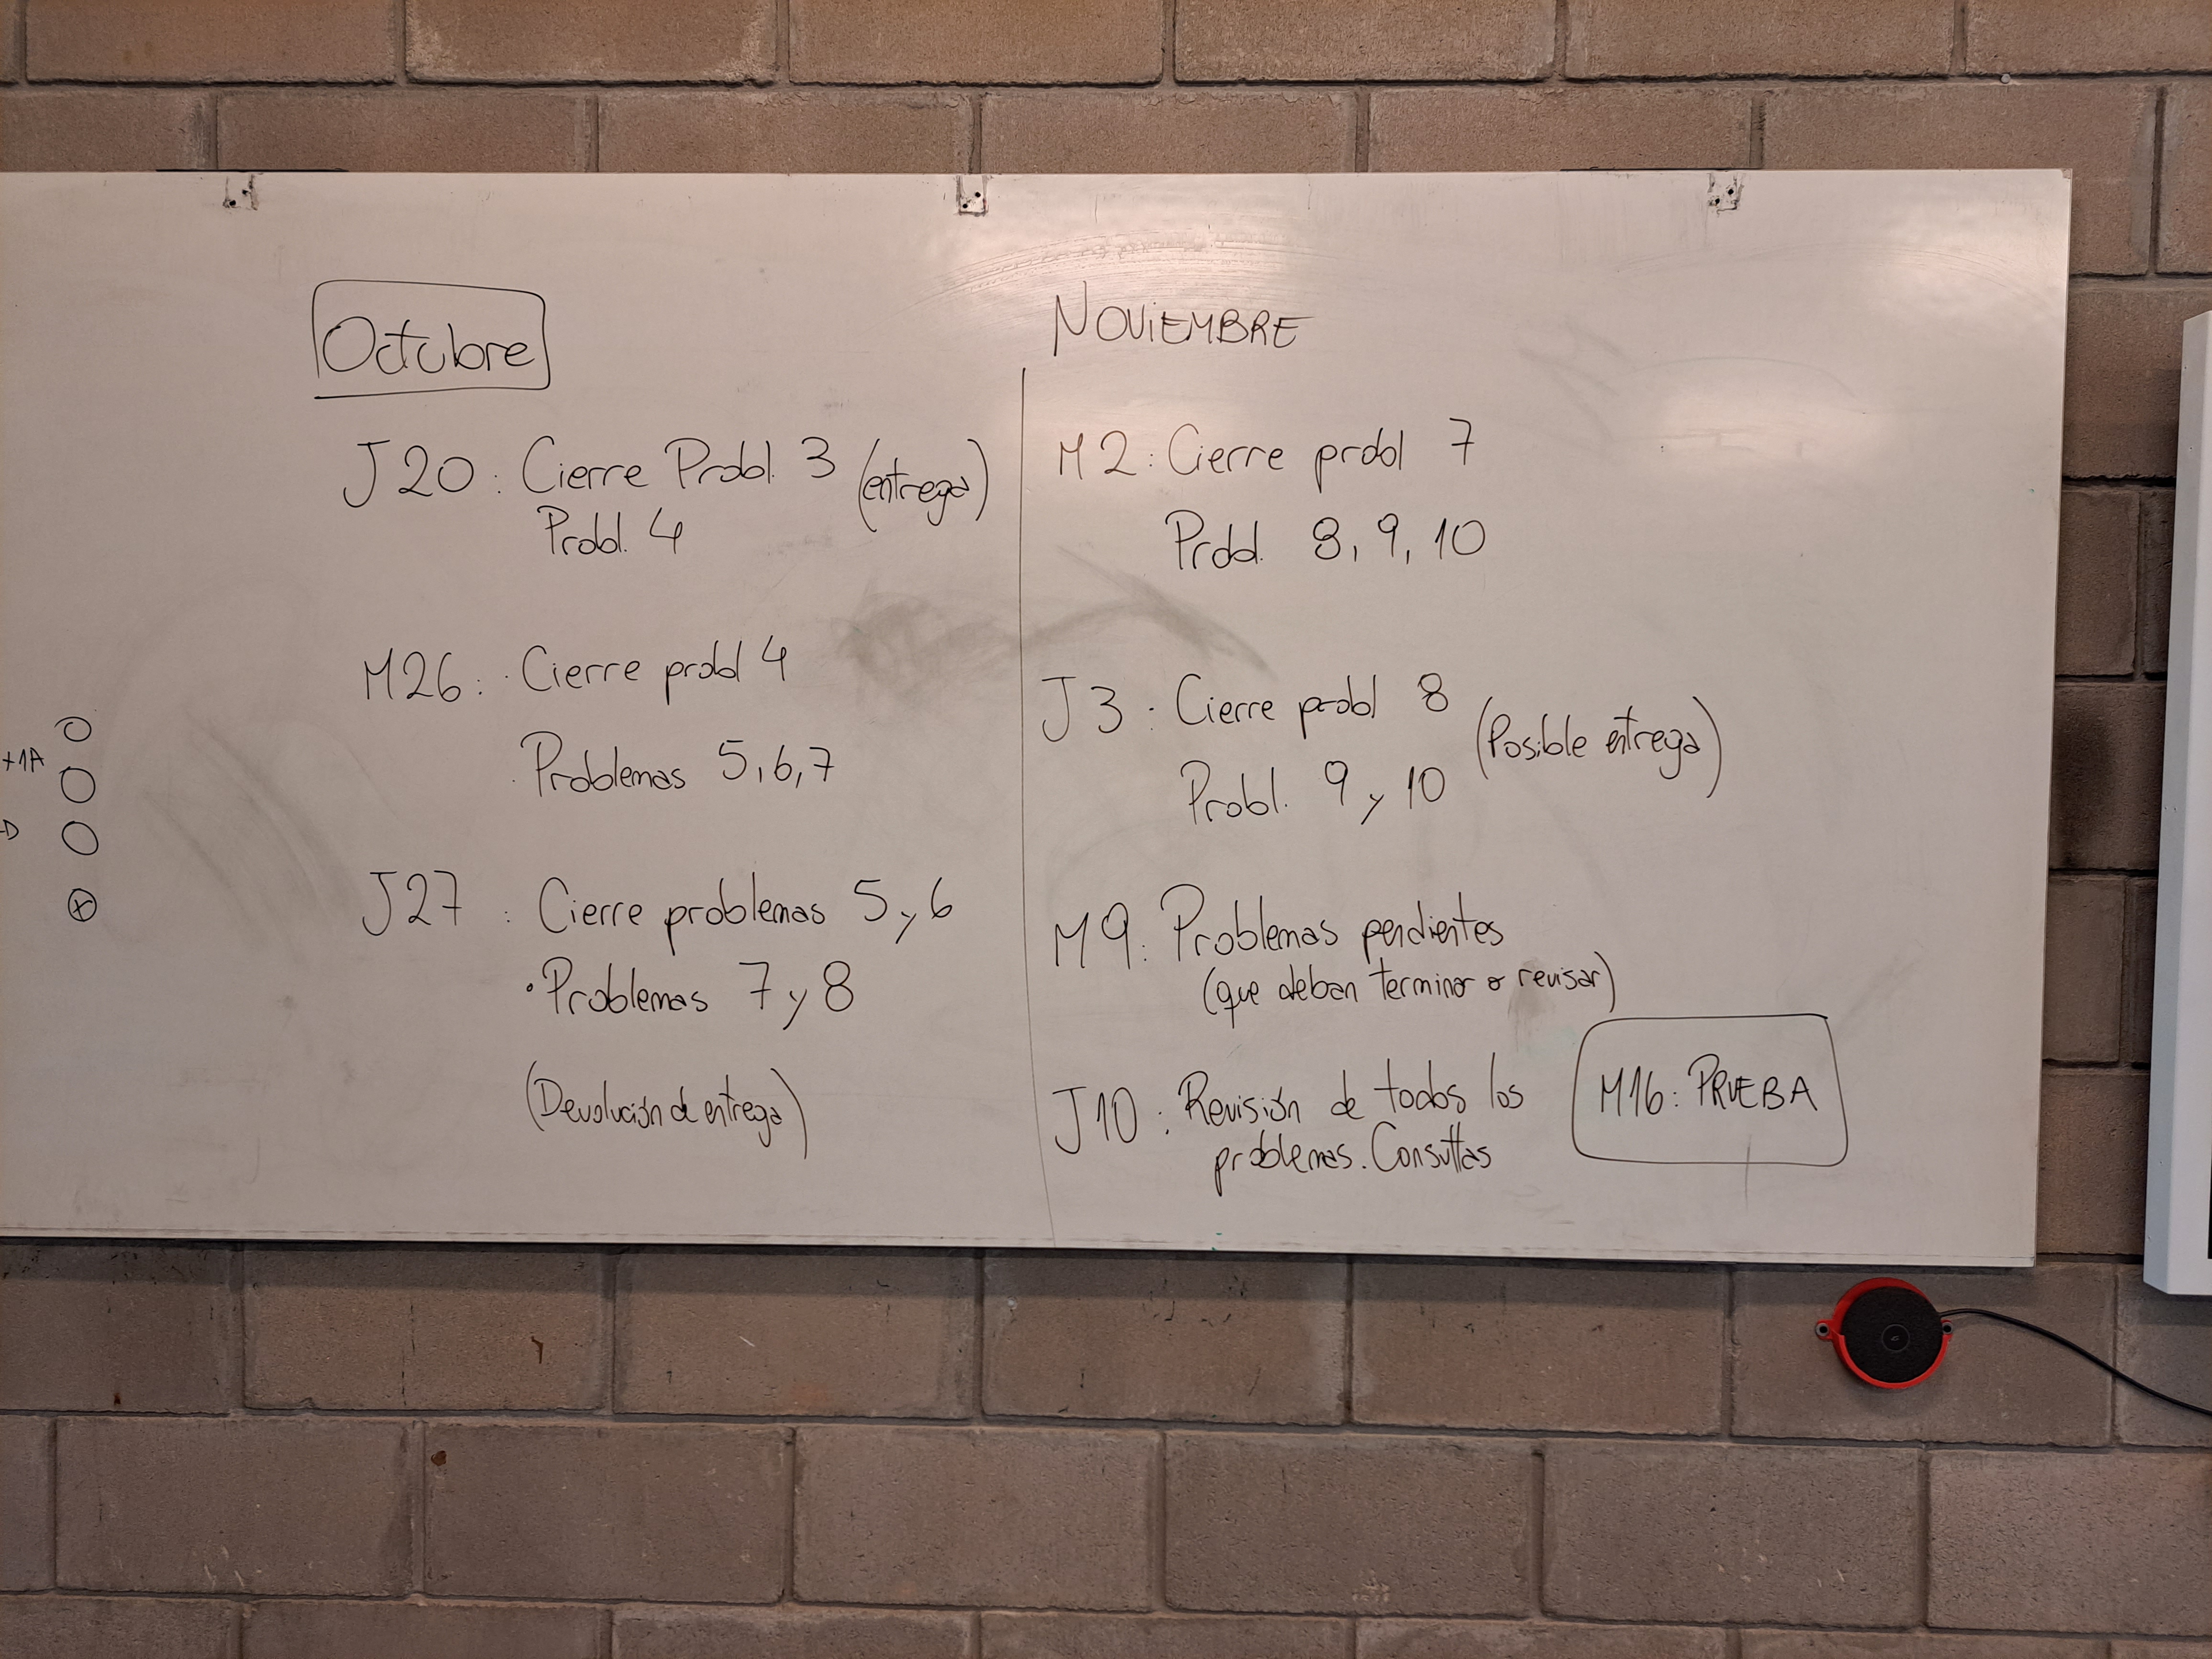 Octubre
J20: Cierre Probl. 3 (entrega)
Probl. 4
M26: Cierre probl 4
Problemas 5, 6, 7
J27: Cierre problemas 5 y 6
• Problemas 7 y 8
(Devolución de entrega)
NOVIEMBRE
M2: Cierre probl 7
Probl. 8, 9, 10
J3: Cierre probl 8 (Posible entrega)
Probl. 9 y 10
M9: Problemas pendientes
(que deban terminar o revisar)
J10: Revisión de todos los
problemas. Consultas
M16: PRUEBA
+1A